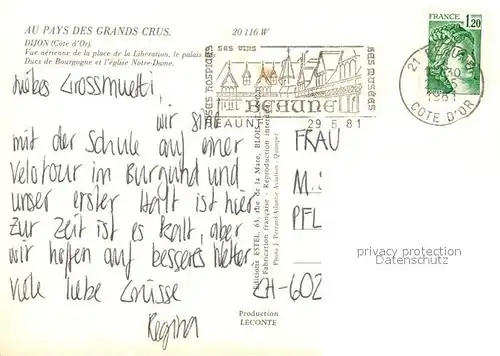 AU PAYS DES GRANDS CRUS.
DIJON (Côte d'Or).
Vue aérienne de la place de la Libération, le palais des
Ducs de Bourgogne et l'église Notre-Dame.
20 116 W
SES HOSPICES
SES VINS
SES MUSÉES
BEAUNE
BEAUNE
29.5.81
FRANCE
1,20
21
1981
COTE D'OR
Liebes Grossmuetti,
wir sind
mit der Schule auf einer
Velotour im Burgund und
unser erster Halt ist hier.
Zur Zeit ist es kalt, aber
wir hoffen auf besseres Wetter
Viele liebe Grüsse
Regina
Editions ESTEL, 63, rue de la Mare, BLOIS
Fabrication française - Reproduction interdite
Production
LECONTE
FRAU
M.
PFL
CH-602
privacy protection
Datenschutz